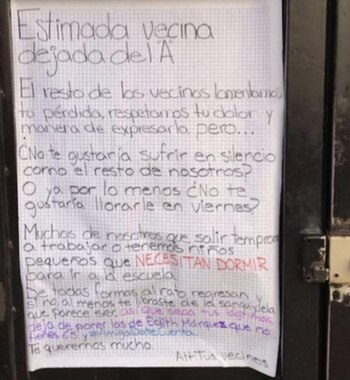 Estimada vecina
dejada del A
El resto de los vecinos lamentamos
tu pérdida, respetamos tu dolor y
manera de expresarlo, pero...
¿No te gustaría sufrir en silencio
como el resto de nosotros?
O ya por lo menos ¿No te
gustaría llorarle en viernes?
Muchos de nosotros que salir temprano
a trabajar o tenemos niños
pequeños que NECESITAN DORMIR
para ir a la escuela
De todas formas al rato regresan y
si no, al menos te libraste de la sanguijuela
que parece ser, así que seca tus lágrimas,
deja de poner las de Edith Márquez que no
tienes 65 y
Te queremos mucho.
Att Tus vecinos